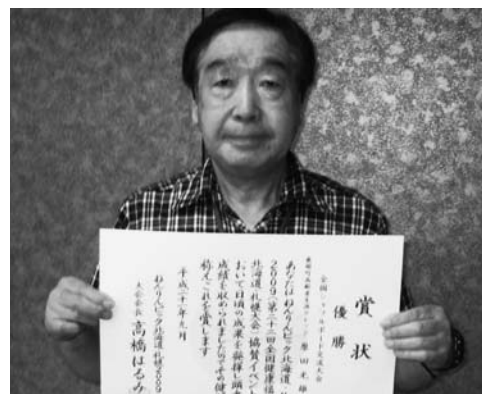 賞状
優勝
全国シャッフルボード交流大会
原田光雄
あなたはねんりんピック北海道・
2009(第二十二回全国健康福
北海道・札幌大会)協賛イベント
おいて日頃の成果を発揮し頭書
成績を収められましたのでその健
称えこれを賞します
平成二十一年九月
ねんりんピック北海道・札幌2009
大会会長 高橋はるみ